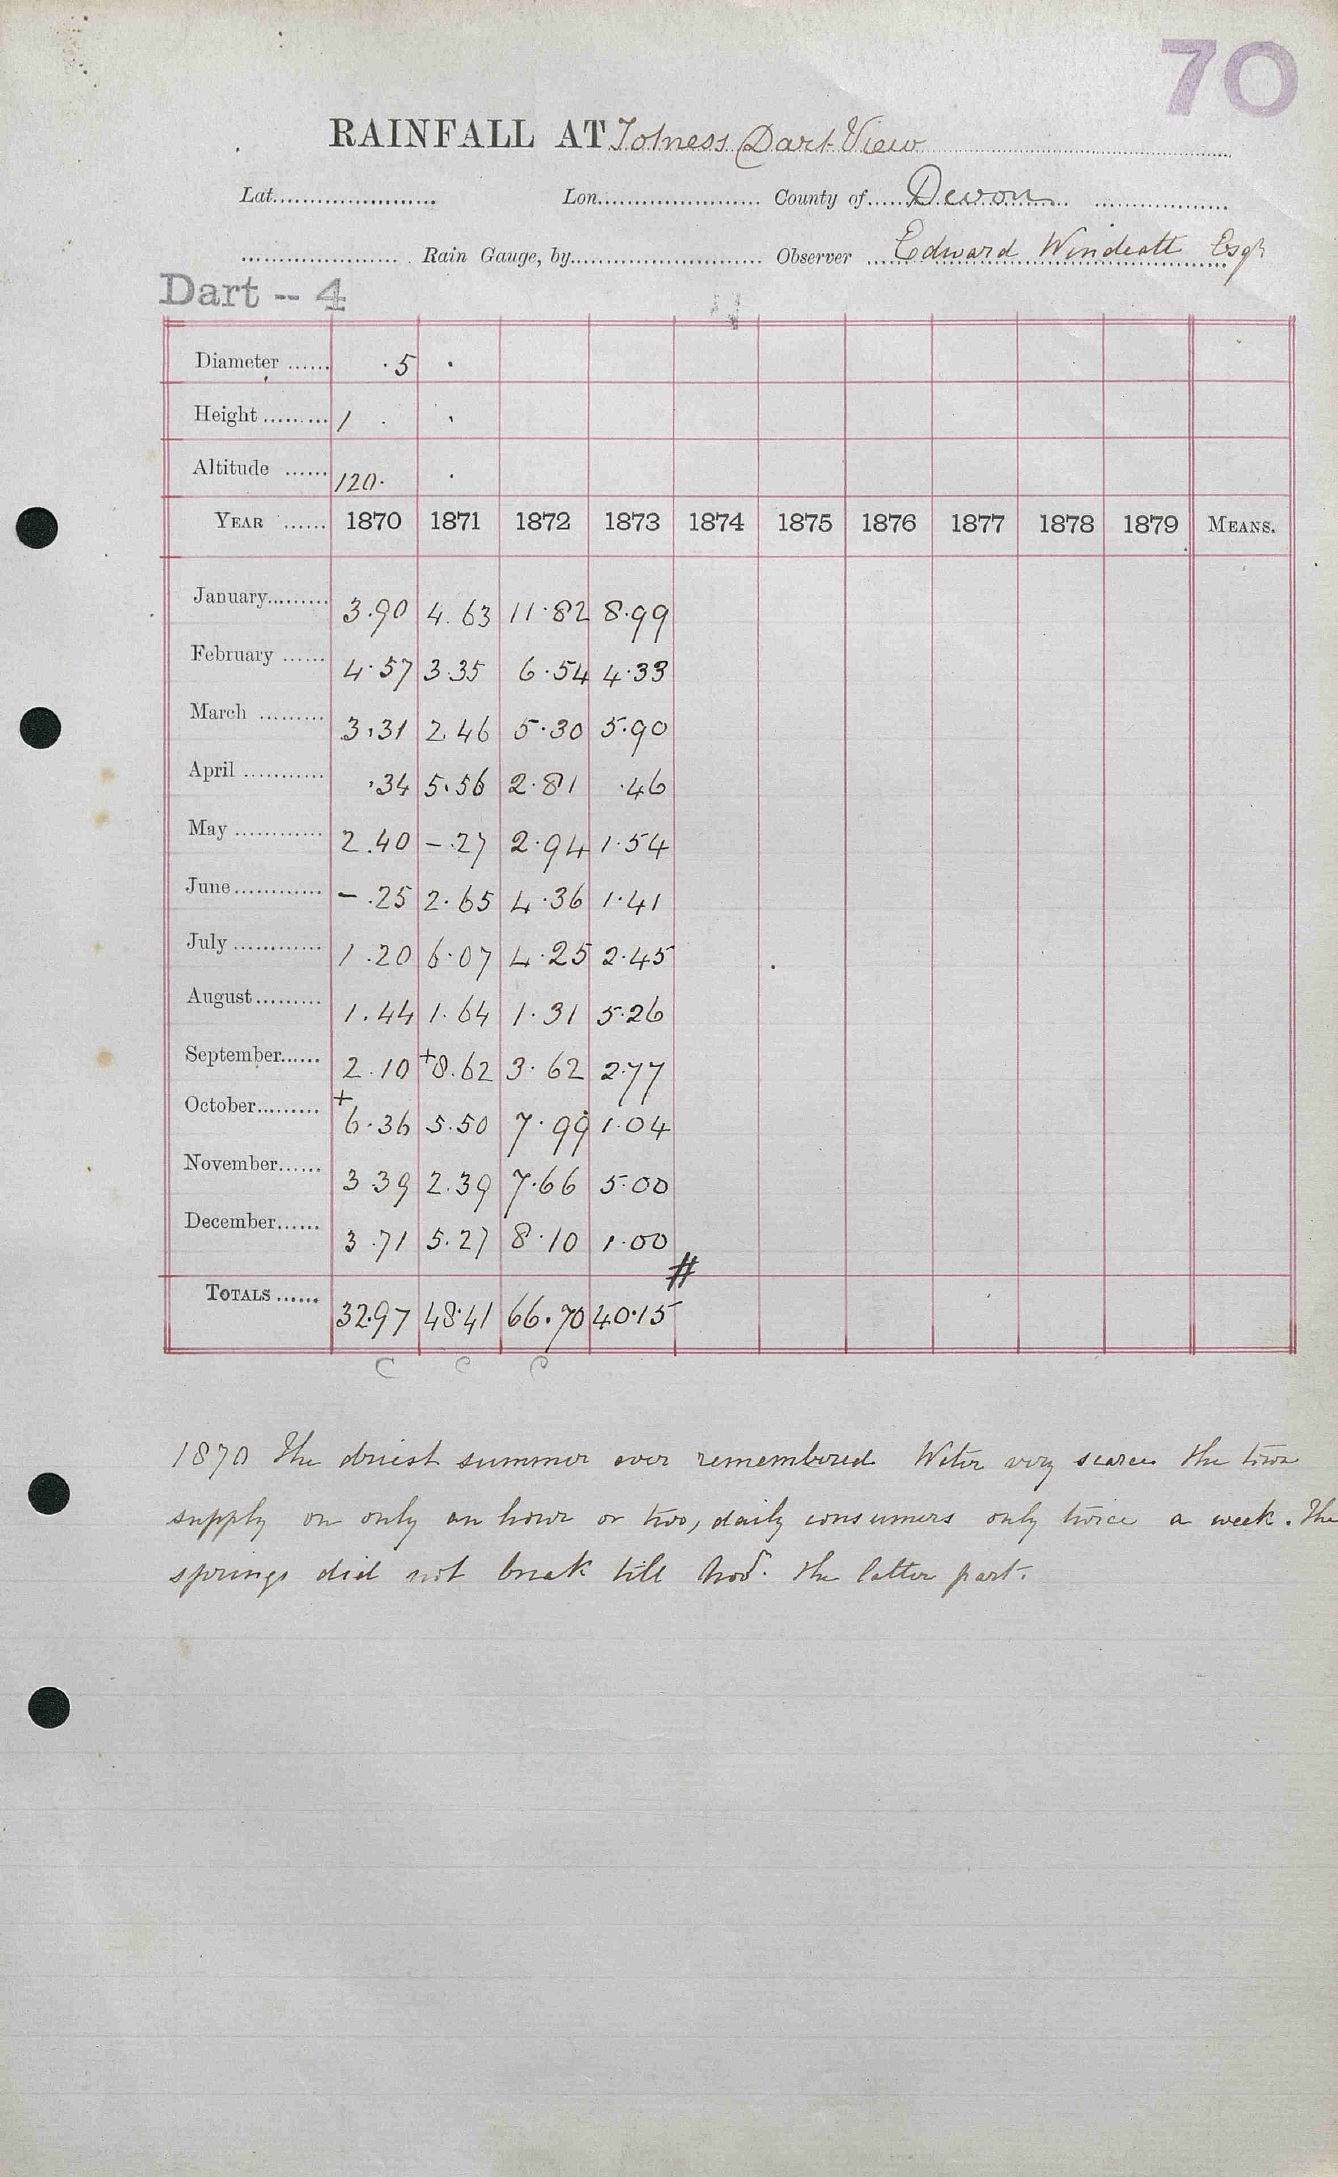 70
RAINFALL AT Totness Dart View
Lat. Lon. County of Devon
Rain Gauge, by Observer Edward Windeatt Esqr
Dart -- 4
Diameter ...... .5 .
Height ......... 1 . .
Altitude ...... 120. .
YEAR ...... 1870 1871 1872 1873 1874 1875 1876 1877 1878 1879 MEANS.
January......... 3.90 4.63 11.82 8.99
February ...... 4.57 3.35 6.54 4.33
March ......... 3.31 2.46 5.30 5.90
April ........... .34 5.56 2.81 .46
May ............ 2.40 -.27 2.94 1.54
June............ -.25 2.65 4.36 1.41
July ............ 1.20 6.07 4.25 2.45
August......... 1.44 1.64 1.31 5.26
September...... 2.10 +8.62 3.62 2.77
October......... +6.36 5.50 7.99 1.04
November...... 3.39 2.39 7.66 5.00
December...... 3.71 5.27 8.10 1.00
#
TOTALS ...... 32.97 48.41 66.70 40.15
C C C
1870 The driest summer ever remembered Water very scarce the town
supply on only an hour or two, daily consumers only twice a week. The
springs did not break till Novr. the latter part.